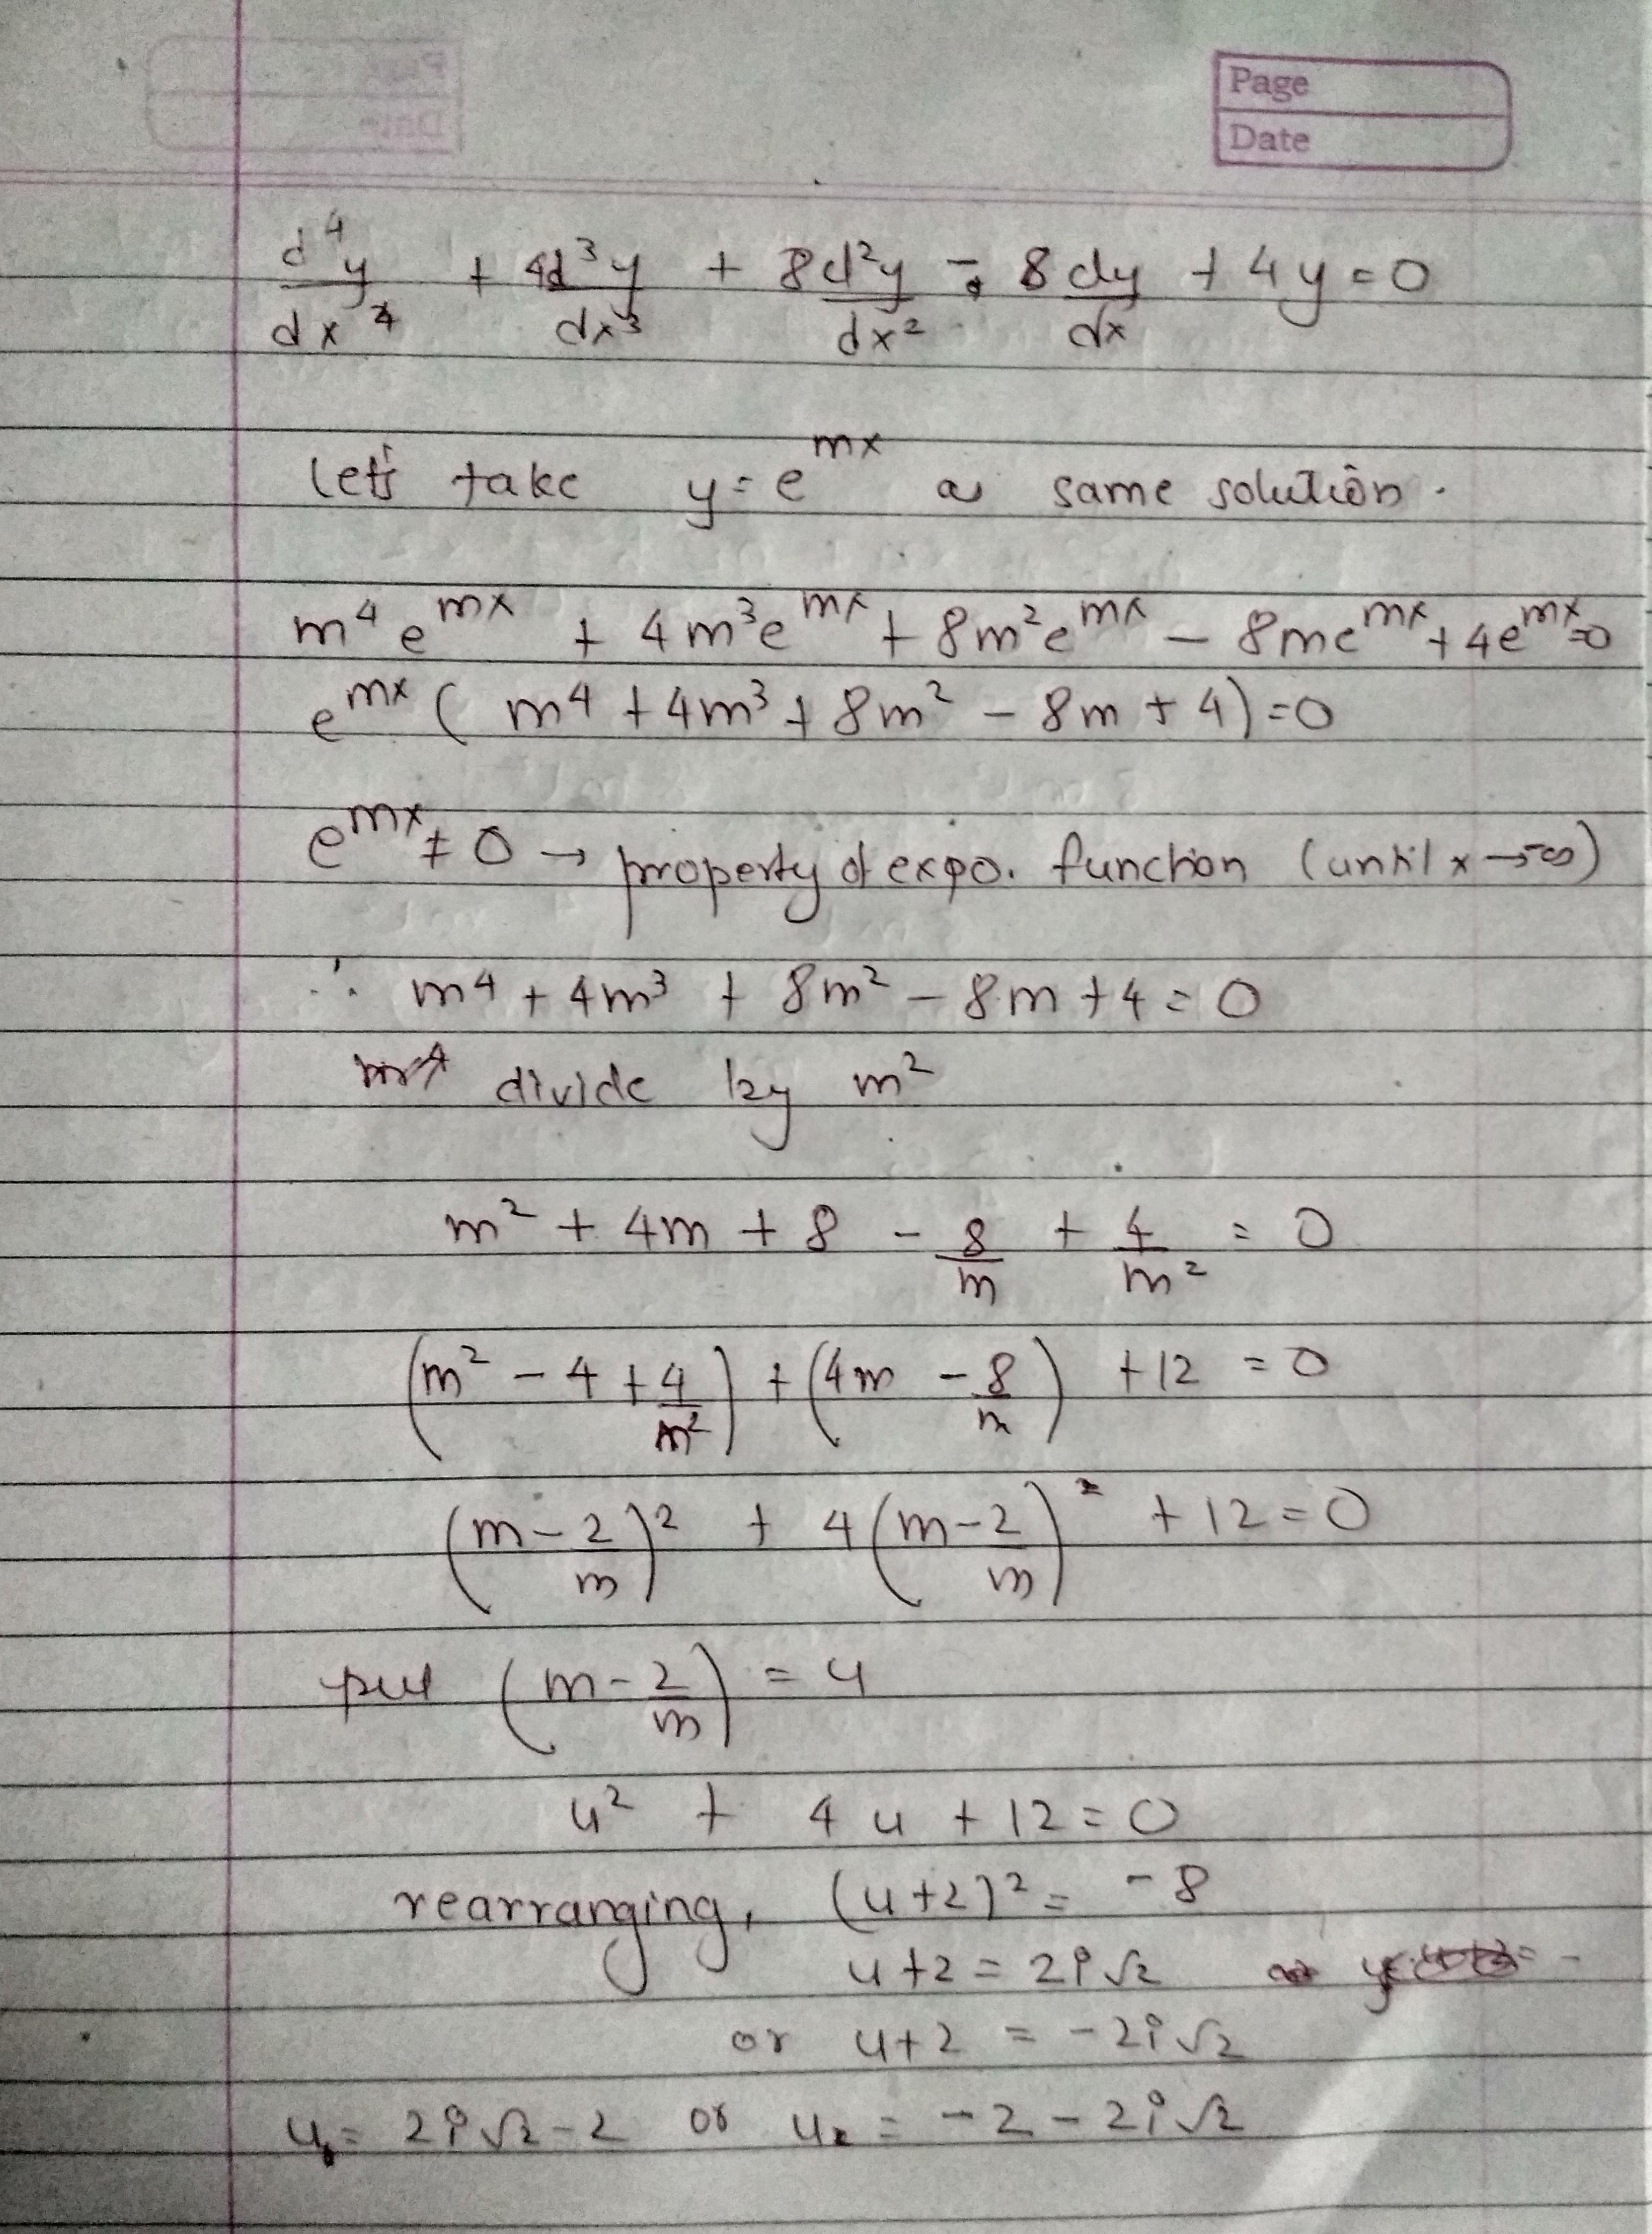 Page
Date
d⁴y/dx⁴ + 4d³y/dx³ + 8d²y/dx² - 8dy/dx + 4y = 0
let's take y = e^mx as same solution.
m⁴e^mx + 4m³e^mx + 8m²e^mx - 8me^mx + 4e^mx = 0
e^mx (m⁴ + 4m³ + 8m² - 8m + 4) = 0
e^mx ≠ 0 → property of expo. function (until x → -∞)
∴ m⁴ + 4m³ + 8m² - 8m + 4 = 0
divide by m²
m² + 4m + 8 - 8/m + 4/m² = 0
(m² - 4 + 4/m²) + (4m - 8/m) + 12 = 0
(m - 2/m)² + 4(m - 2/m) + 12 = 0
put (m - 2/m) = u
u² + 4u + 12 = 0
rearranging, (u+2)² = -8
u+2 = 2i√2
or u+2 = -2i√2
u₁ = 2i√2 - 2 or u₂ = -2 - 2i√2